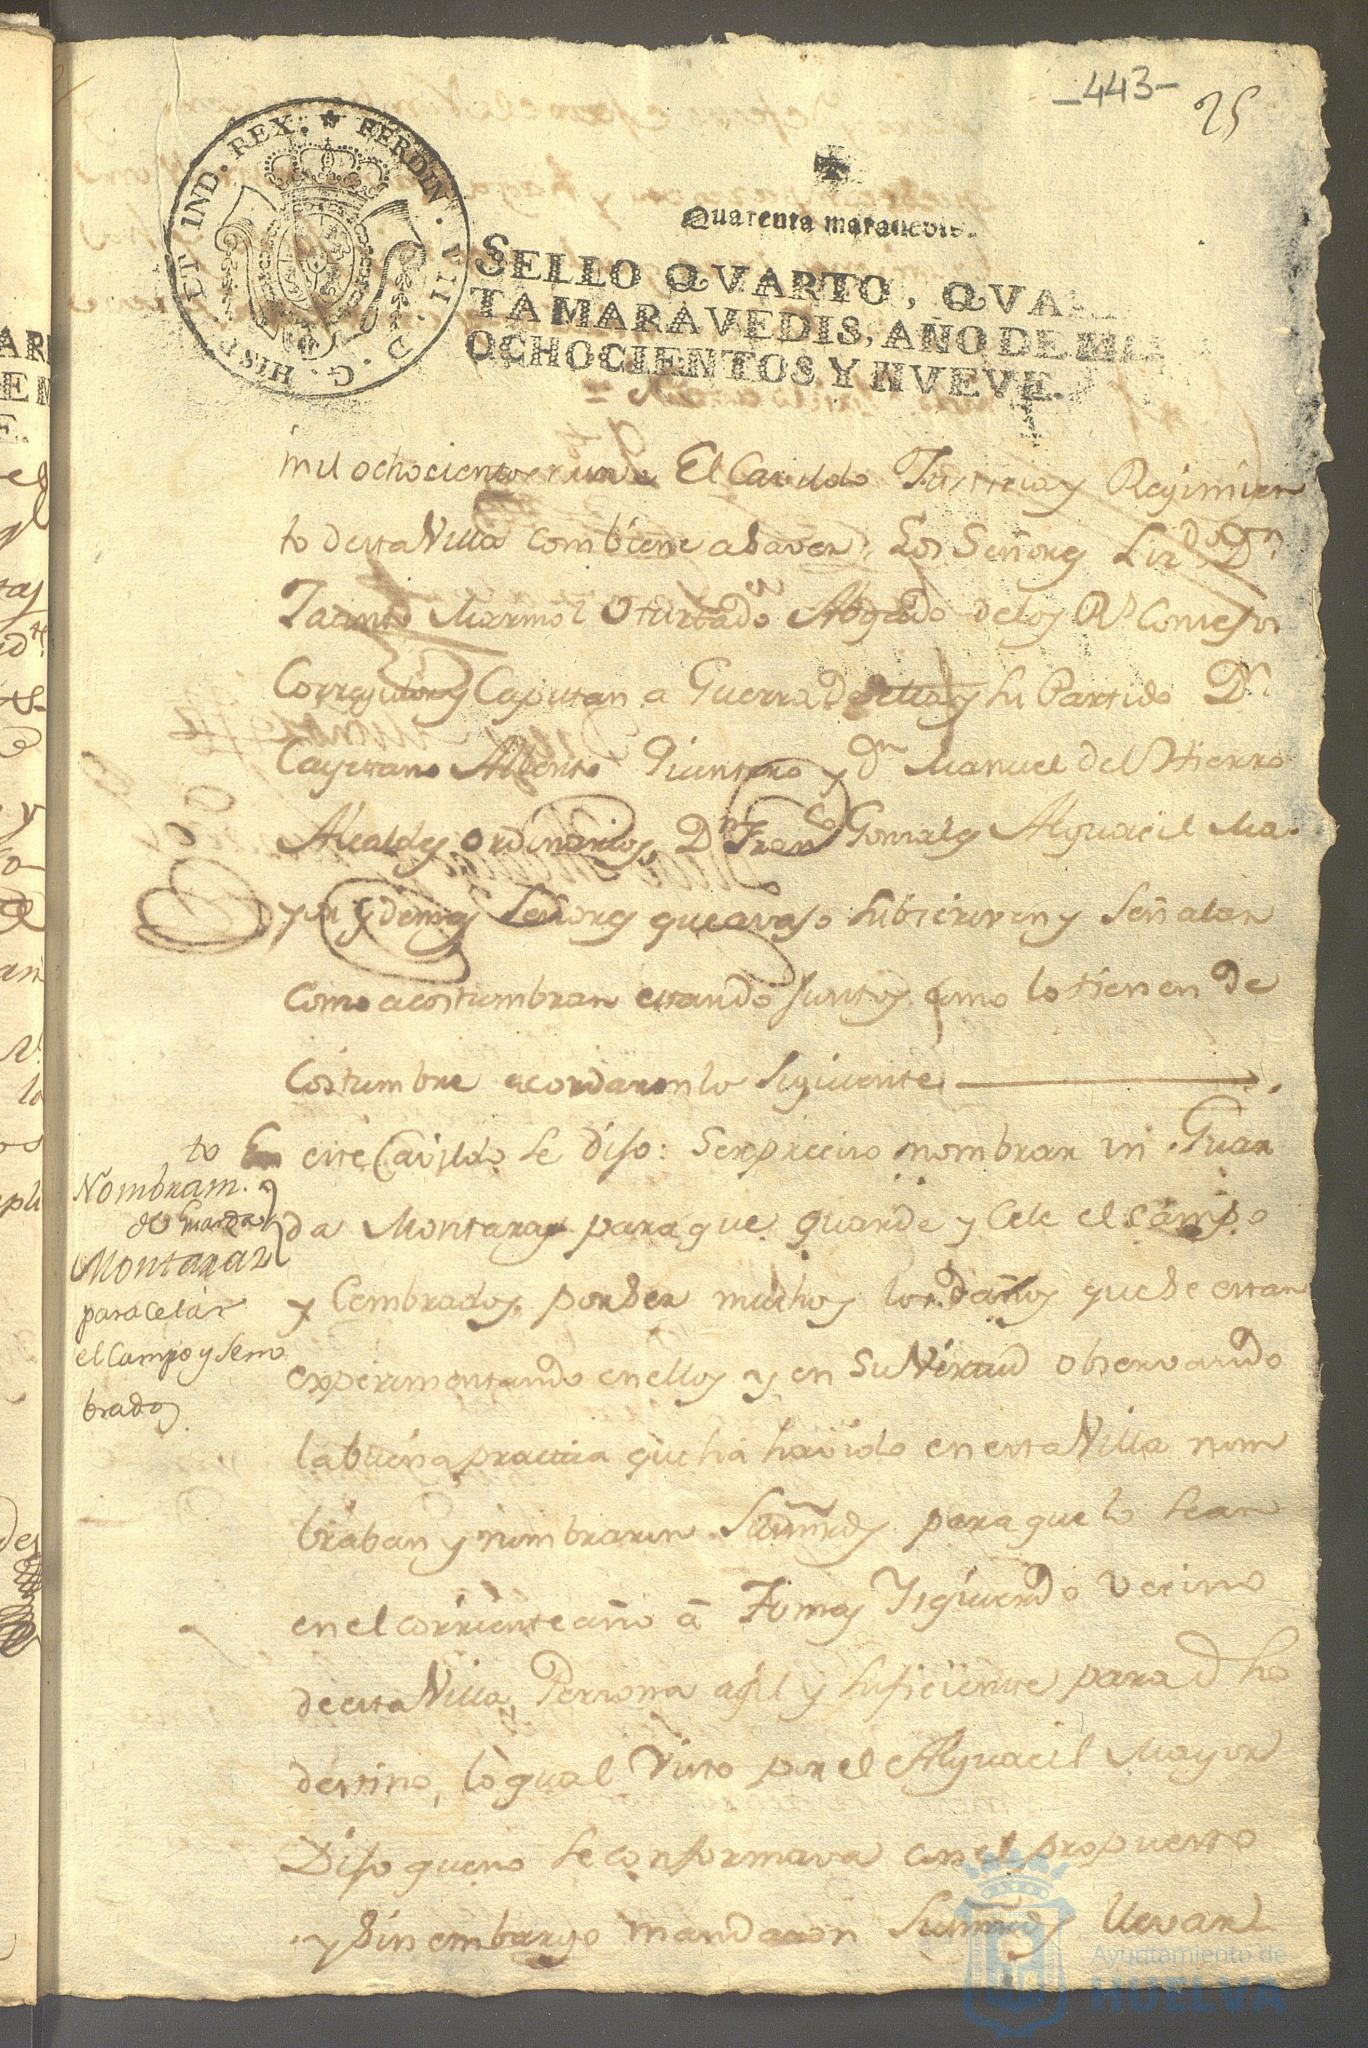 -443-
25
FERDIN. VII. D. G. HISP. ET IND. REX.
Quarenta maravedis.
SELLO QVARTO, QVA
TAMARAVEDIS, AÑO DE MIL
OCHOCIENTOS Y NVEVE.
mil ochocientos nueve El Cavildo Justicia y Regimien
to desta Villa combiene a saver; Los Señores Lizdo Dn
Jacinto Marmol Hurtado Abogado de los Rs Consejos
Corregidor y Capitan a Guerra de ella y su Partido Dn
Cayetano Alberto Quintero y Dn Manuel del Hierro
Alcaldes ordinarios, Dn Franco Gonzales Alguacil Ma.
yor y demas Señores que avajo subscriven y señalan
como acostumbran estando juntos como lo tienen de
costumbre acordaron lo siguiente
to En este Cavildo se dijo: ser preciso nombrar un Guar
da Montaraz para que guarde y Cele el campo
y Cembrados, por ser muchos los daños que se estan
experimentando en ellos y en su Virtud observando
la buena practica que ha havido en esta Villa nom
braban y nombraron Sus mrds para que lo sean
en el corriente año à Tomas Isquierdo vecino
de esta Villa, Perrona agil y suficiente para dho
destino, lo qual visto por el Alguacil Mayor
Dijo que no se conformava con el propuesto
y sin embargo mandaron Sus mrds llevar
Nombram.
de Guarda
Montaraz
para celar
el Campo y sem
brados
Ayuntamiento de
HUELVA